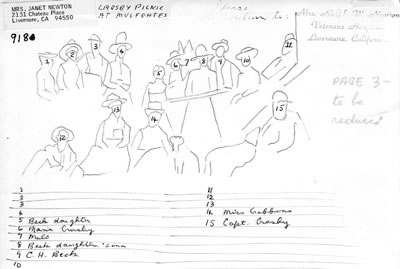 MRS. JANET NEWTON
2131 Chateau Place
Livermore, CA 94550
CROSBY PICNIC
AT MULFONTES
Please
return to:
Mrs. Ralph W. Newton
Veterans Hospital
Livermore, California
918
PAGE 3-
to be
reduced
1
3
4
5
6
7
8
9
10
11
12
13
14
15
1
2
3
4
5 Beck daughter
6 Maria Crosby
7 Milo
8 Beck daughter
9 C. H. Beck
10
11
12
13
14 Miss Gibbons
15 Capt. Crosby